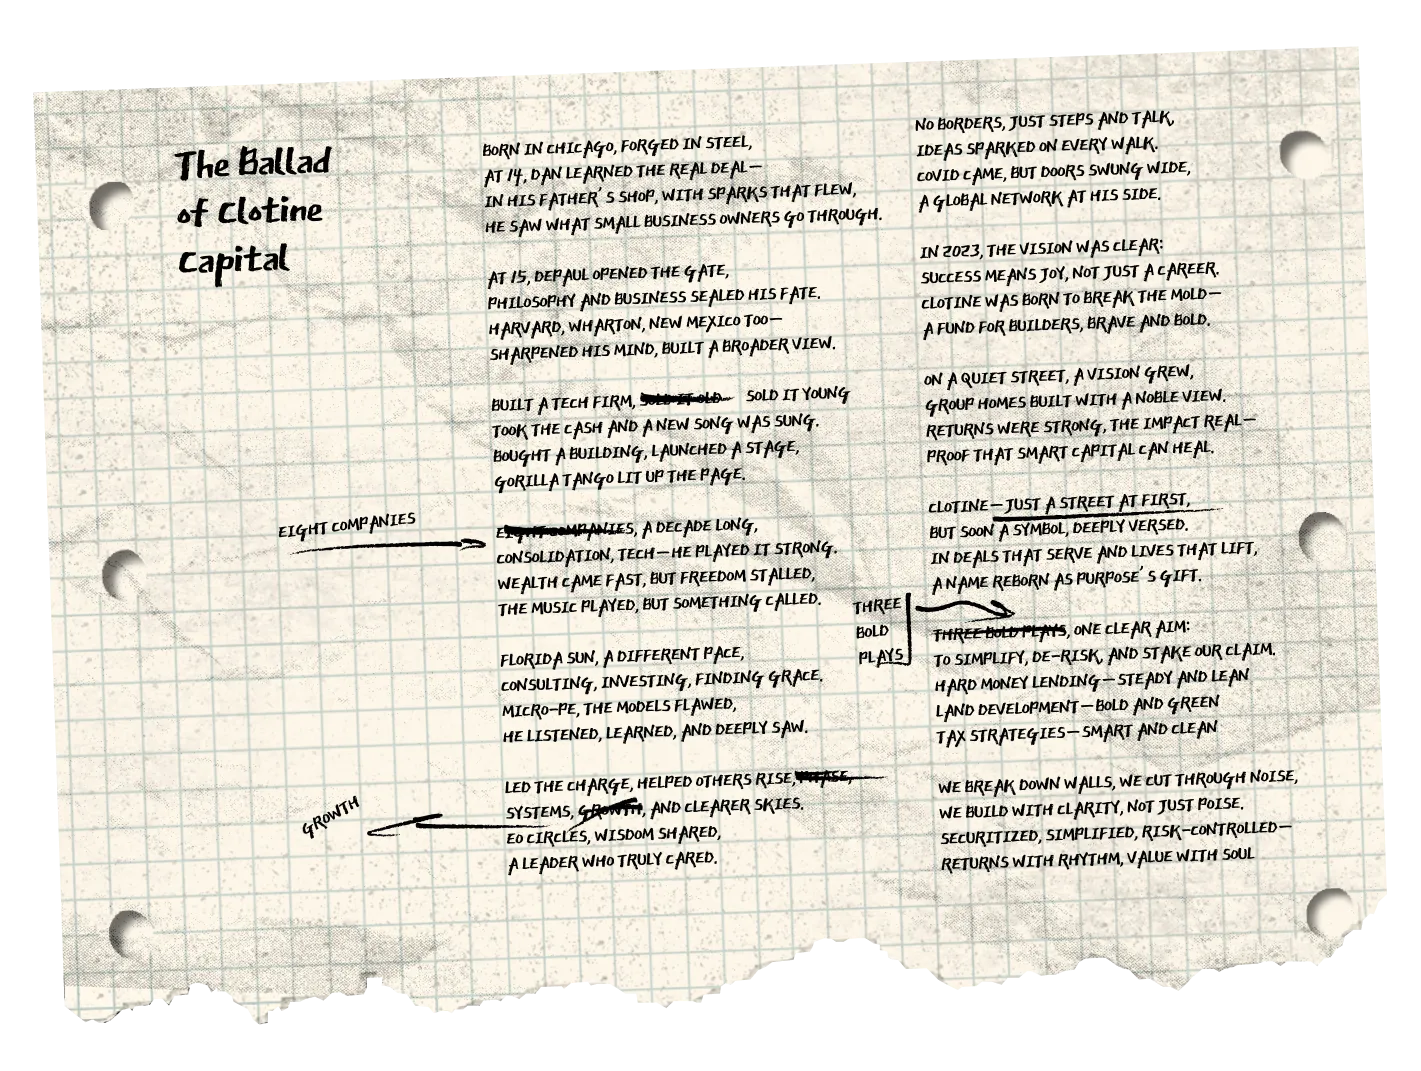 The Ballad
of Clotine
Capital
BORN IN CHICAGO, FORGED IN STEEL,
AT 14, DAN LEARNED THE REAL DEAL—
IN HIS FATHER'S SHOP, WITH SPARKS THAT FLEW,
HE SAW WHAT SMALL BUSINESS OWNERS GO THROUGH.
AT 15, DEPAUL OPENED THE GATE,
PHILOSOPHY AND BUSINESS SEALED HIS FATE.
HARVARD, WHARTON, NEW MEXICO TOO—
SHARPENED HIS MIND, BUILT A BROADER VIEW.
BUILT A TECH FIRM, SOLD IT OLD SOLD IT YOUNG
TOOK THE CASH AND A NEW SONG WAS SUNG.
BOUGHT A BUILDING, LAUNCHED A STAGE,
GORILLA TANGO LIT UP THE PAGE.
EIGHT COMPANIES
EIGHT COMPANIES, A DECADE LONG,
CONSOLIDATION, TECH—HE PLAYED IT STRONG.
WEALTH CAME FAST, BUT FREEDOM STALLED,
THE MUSIC PLAYED, BUT SOMETHING CALLED.
FLORIDA SUN, A DIFFERENT PACE,
CONSULTING, INVESTING, FINDING GRACE.
MICRO-PE, THE MODELS FLAWED,
HE LISTENED, LEARNED, AND DEEPLY SAW.
LED THE CHARGE, HELPED OTHERS RISE,
SYSTEMS, GROWTH, AND CLEARER SKIES.
GROWTH
EO CIRCLES, WISDOM SHARED,
A LEADER WHO TRULY CARED.
NO BORDERS, JUST STEPS AND TALK,
IDEAS SPARKED ON EVERY WALK.
COVID CAME, BUT DOORS SWUNG WIDE,
A GLOBAL NETWORK AT HIS SIDE.
IN 2023, THE VISION WAS CLEAR:
SUCCESS MEANS JOY, NOT JUST A CAREER.
CLOTINE WAS BORN TO BREAK THE MOLD—
A FUND FOR BUILDERS, BRAVE AND BOLD.
ON A QUIET STREET, A VISION GREW,
GROUP HOMES BUILT WITH A NOBLE VIEW.
RETURNS WERE STRONG, THE IMPACT REAL—
PROOF THAT SMART CAPITAL CAN HEAL.
CLOTINE—JUST A STREET AT FIRST,
BUT SOON A SYMBOL, DEEPLY VERSED.
IN DEALS THAT SERVE AND LIVES THAT LIFT,
A NAME REBORN AS PURPOSE'S GIFT.
THREE
BOLD
PLAYS
THREE BOLD PLAYS, ONE CLEAR AIM:
TO SIMPLIFY, DE-RISK, AND STAKE OUR CLAIM.
HARD MONEY LENDING—STEADY AND LEAN
LAND DEVELOPMENT—BOLD AND GREEN
TAX STRATEGIES—SMART AND CLEAN
WE BREAK DOWN WALLS, WE CUT THROUGH NOISE,
WE BUILD WITH CLARITY, NOT JUST POISE.
SECURITIZED, SIMPLIFIED, RISK-CONTROLLED—
RETURNS WITH RHYTHM, VALUE WITH SOUL